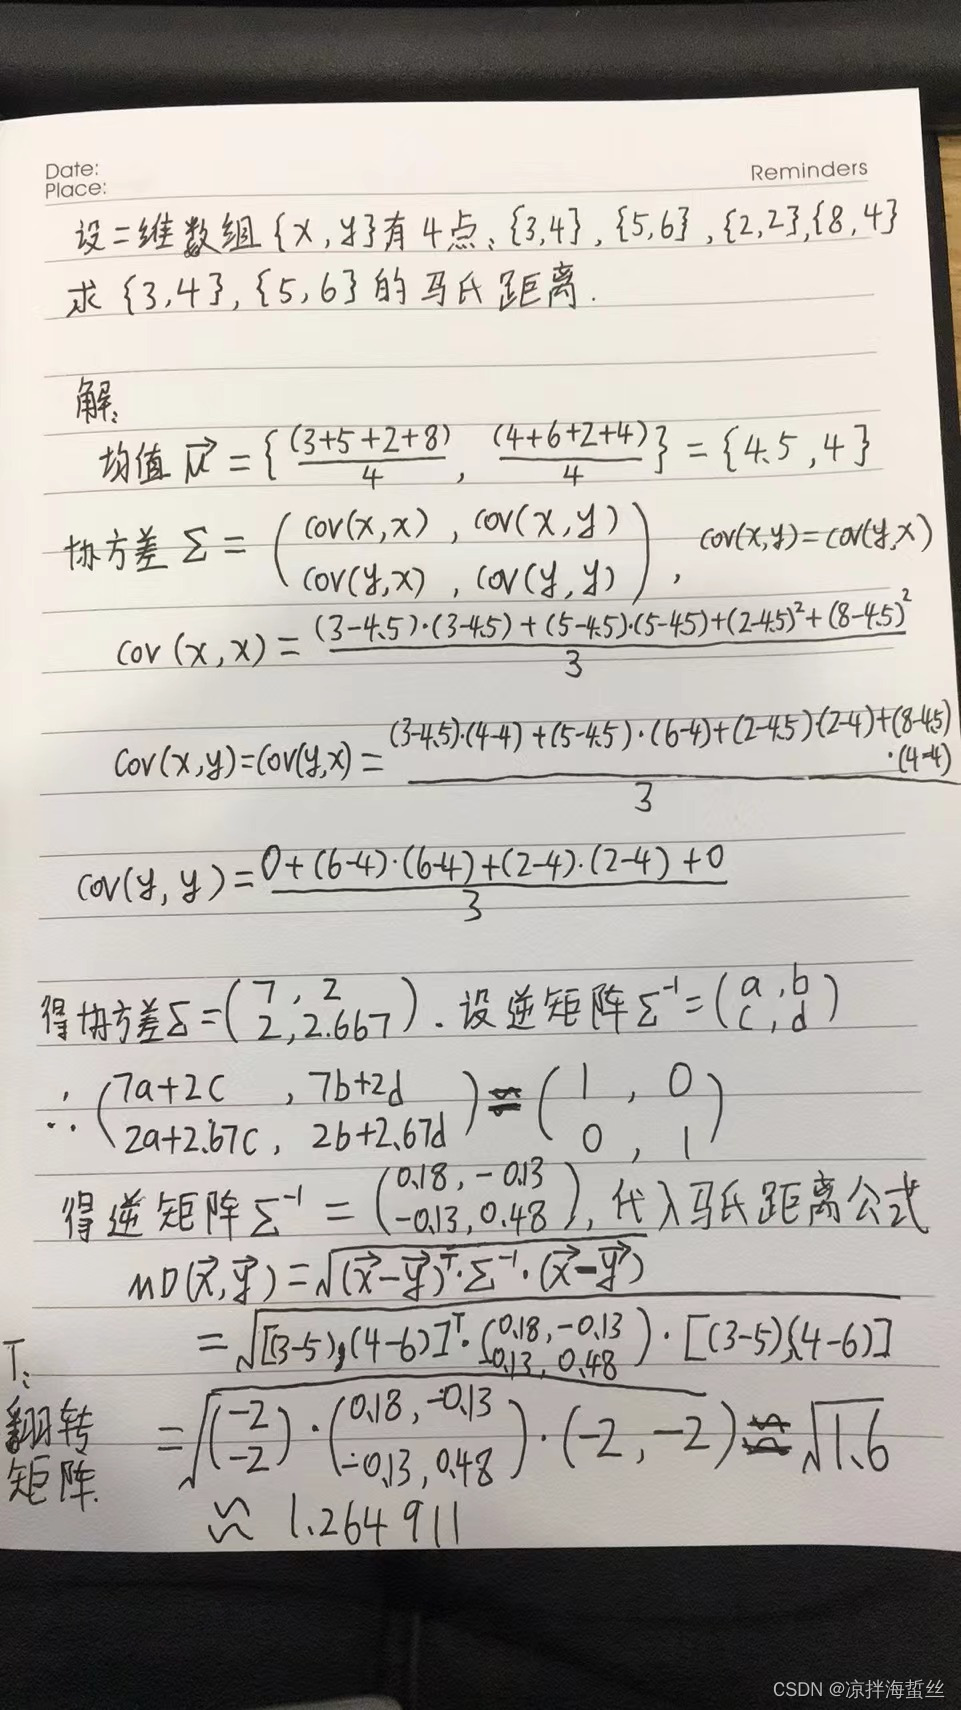 Date:
Place:
Reminders
设二维数组{x,y}有4点:{3,4},{5,6},{2,2},{8,4}
求{3,4},{5,6}的马氏距离.
解:
均值 μ⃗ = {(3+5+2+8)/4, (4+6+2+4)/4} = {4.5,4}
协方差 Σ = (cov(x,x), cov(x,y)
cov(y,x), cov(y,y)), cov(x,y)=cov(y,x)
cov(x,x) = ((3-4.5)·(3-4.5)+(5-4.5)·(5-4.5)+(2-4.5)²+(8-4.5)²)/3
cov(x,y)=cov(y,x)= ((3-4.5)·(4-4)+(5-4.5)·(6-4)+(2-4.5)·(2-4)+(8-4.5)
·(4-4))/3
cov(y,y)= (0+(6-4)·(6-4)+(2-4)·(2-4)+0)/3
得协方差Σ=(7,2
2,2.667). 设逆矩阵Σ⁻¹=(a,b
c,d)
∴ (7a+2c, 7b+2d
2a+2.67c, 2b+2.67d) = (1,0
0,1)
得逆矩阵Σ⁻¹ = (0.18,-0.13
-0.13,0.48), 代入马氏距离公式
MD(x⃗,y⃗)=√((x⃗-y⃗)ᵀ·Σ⁻¹·(x⃗-y⃗))
=√([(3-5),(4-6)]ᵀ·(0.18,-0.13
-0.13,0.48)·[(3-5),(4-6)])
T:
翻转
矩阵.
=√((-2
-2)·(0.18,-0.13
-0.13,0.48)·(-2,-2)) ≈ √1.6
≈ 1.264911
CSDN @凉拌海蜇丝